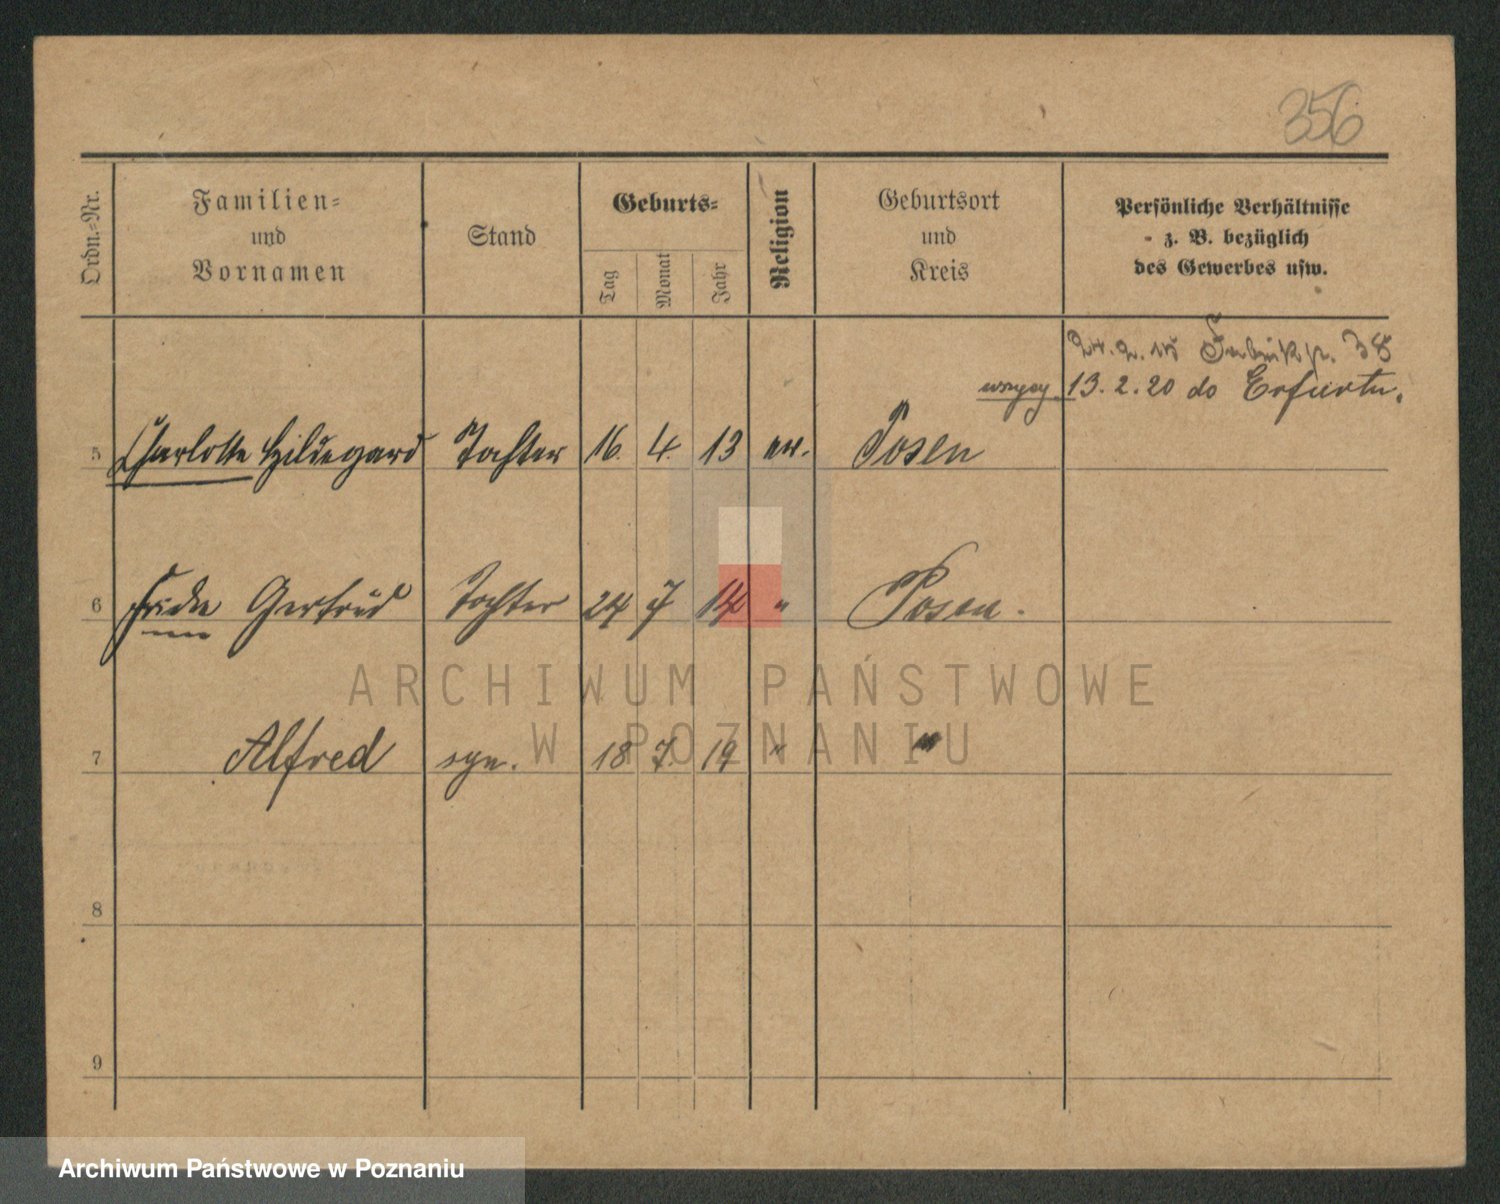 356
Ordn.=Nr.
Familien=
und
Vornamen
Stand
Geburts=
Tag
Monat
Jahr
Religion
Geburtsort
und
Kreis
Persönliche Verhältnisse
z. B. bezüglich
des Gewerbes usw.
24. 2. 15 38
13. 2. 20 do Erfurtu.
5 Charlotte Hildegard Tochter 16. 4. 13 ev. Posen
6 Gertrud Tochter 24 7 14 " Posen.
7 Alfred syn. 18 7. 19 " "
8
9
ARCHIWUM PAŃSTWOWE
W POZNANIU
Archiwum Państwowe w Poznaniu